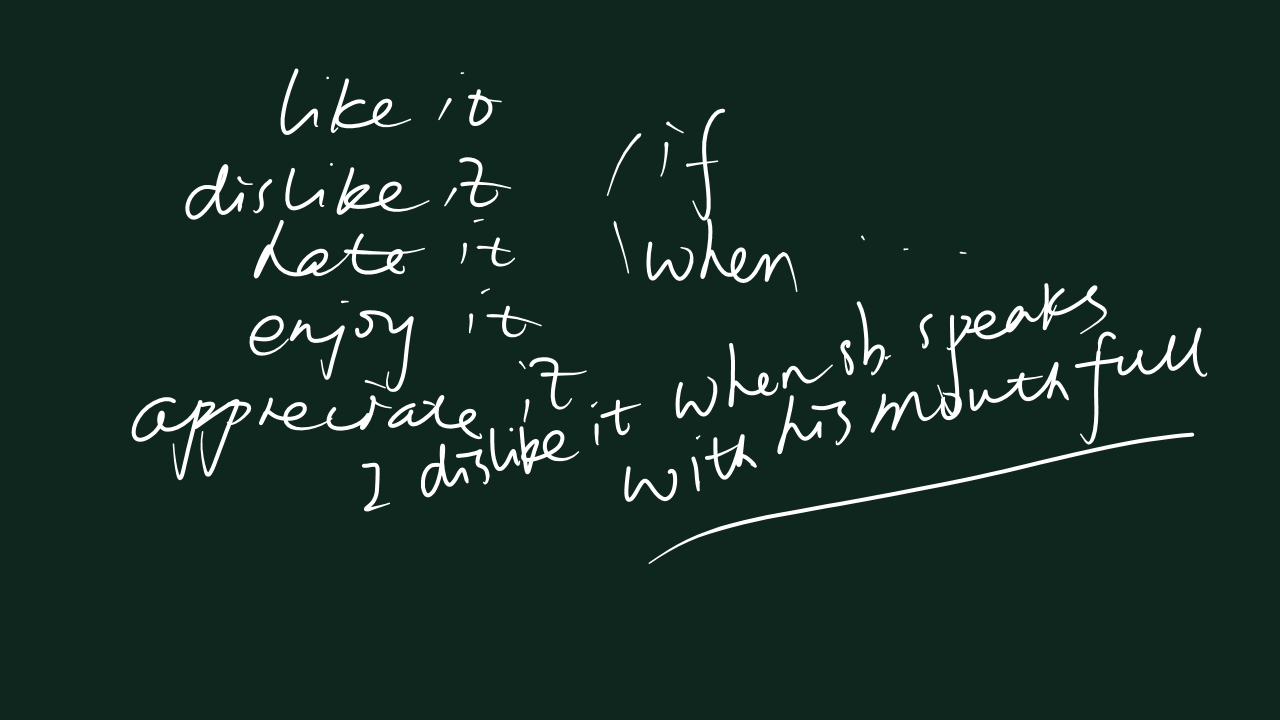 like it
dislike it
hate it
enjoy it
appreciate it
if
when ...
I dislike it when sb. speaks
with his mouth full